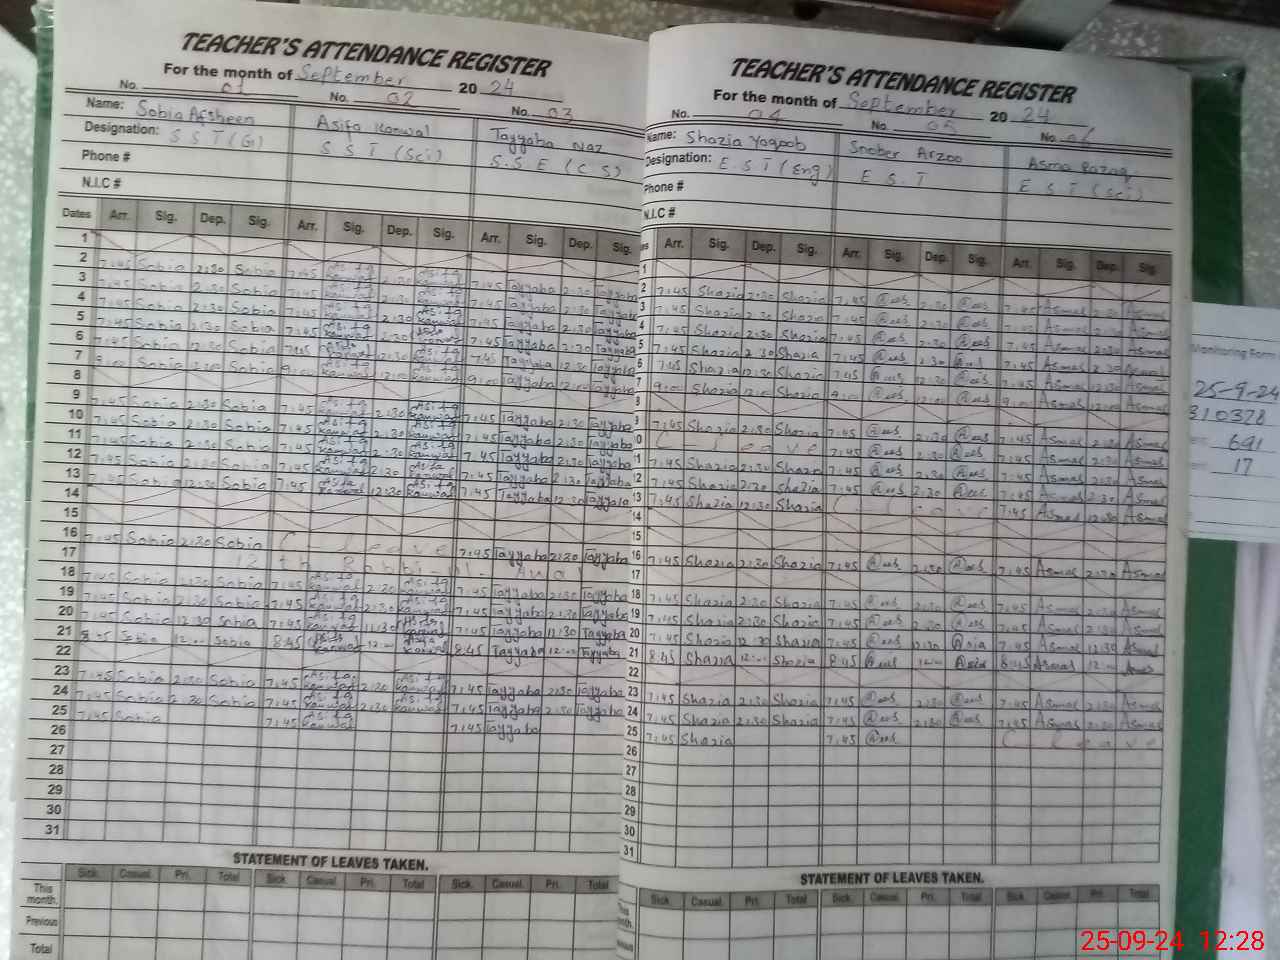 TEACHER'S ATTENDANCE REGISTER
For the month of September 2024
No. 01 No. 02 No. 03
Name: Sobia Afsheen Asifa Kanwal Tayyaba Naz
Designation: S S T (G) S S T (Sci) S.S.E (C S)
Phone #
N.I.C #
Dates Arr. Sig. Dep. Sig. Arr. Sig. Dep. Sig. Arr. Sig. Dep. Sig.
1
2 7:45 Sobia 2:30 Sobia 7:45 Asifa Kanwal 2:30 Asifa Kanwal 7:45 Tayyaba 2:30 Tayyaba
3 7:45 Sobia 2:30 Sobia 7:45 Asifa Kanwal 2:30 Asifa Kanwal 7:45 Tayyaba 2:30 Tayyaba
4 7:45 Sobia 2:30 Sobia 7:45 Asifa Kanwal 2:30 Asifa Kanwal 7:45 Tayyaba 2:30 Tayyaba
5 7:45 Sobia 2:30 Sobia 7:45 Asifa Kanwal 2:30 Asifa Kanwal 7:45 Tayyaba 2:30 Tayyaba
6 7:45 Sobia 12:30 Sobia 7:45 Asifa Kanwal 12:30 Asifa Kanwal 7:45 Tayyaba 12:30 Tayyaba
7 9:00 Sobia 12:00 Sobia 9:00 Asifa Kanwal 12:00 Asifa Kanwal 9:00 Tayyaba 12:00 Tayyaba
8
9 7:45 Sobia 2:30 Sobia 7:45 Asifa Kanwal 2:30 Asifa Kanwal 7:45 Tayyaba 2:30 Tayyaba
10 7:45 Sobia 2:30 Sobia 7:45 Asifa Kanwal 2:30 Asifa Kanwal 7:45 Tayyaba 2:30 Tayyaba
11 7:45 Sobia 2:30 Sobia 7:45 Asifa Kanwal 2:30 Asifa Kanwal 7:45 Tayyaba 2:30 Tayyaba
12 7:45 Sobia 2:30 Sobia 7:45 Asifa Kanwal 2:30 Asifa Kanwal 7:45 Tayyaba 2:30 Tayyaba
13 7:45 Sobia 12:30 Sobia 7:45 Asifa Kanwal 12:30 Asifa Kanwal 7:45 Tayyaba 12:30 Tayyaba
14
15
16 7:45 Sobia 2:30 Sobia C leave 7:45 Tayyaba 2:30 Tayyaba
17 12 th Rabbi-ul-Awal
18 7:45 Sobia 2:30 Sobia 7:45 Asifa Kanwal 2:30 Asifa Kanwal 7:45 Tayyaba 2:30 Tayyaba
19 7:45 Sobia 2:30 Sobia 7:45 Asifa Kanwal 2:30 Asifa Kanwal 7:45 Tayyaba 2:30 Tayyaba
20 7:45 Sobia 12:30 Sobia 7:45 Asifa Kanwal Asifa Kanwal 7:45 Tayyaba Tayyaba
21 8:45 Sobia 12:00 Sobia 8:45 Asifa Kanwal 12:00 Asifa Kanwal 8:45 Tayyaba 12:00 Tayyaba
22
23 7:45 Sobia 2:30 Sobia 7:45 Asifa Kanwal 2:30 Asifa Kanwal 7:45 Tayyaba 2:30 Tayyaba
24 7:45 Sobia 2:30 Sobia 7:45 Asifa Kanwal 2:30 Asifa Kanwal 7:45 Tayyaba 2:30 Tayyaba
25 7:45 Sobia 7:45 Asifa Kanwal 7:45 Tayyaba
26
27
28
29
30
31
STATEMENT OF LEAVES TAKEN.
Sick. Casual. Pri. Total Sick. Casual Pri. Total Sick. Casual. Pri. Total
This month.
Previous
Total
TEACHER'S ATTENDANCE REGISTER
For the month of September 2024
No. 04 No. 05 No. 06
Name: Shazia Yaqoob Snober Arzoo Asma Razaq
Designation: E.S.T (Eng) E S.T E S T (Sci)
Phone #
N.I.C #
Arr. Sig. Dep. Sig. Arr. Sig. Dep. Sig. Arr. Sig. Dep. Sig.
1
2 7:45 Shazia 2:30 Shazia 7:45 2:30 7:45 Asma 2:30 Asma
3 7:45 Shazia 2:30 Shazia 7:45 2:30 7:45 Asma 2:30 Asma
4 7:45 Shazia 2:30 Shazia 7:45 2:30 7:45 Asma 2:30 Asma
5 7:45 Shazia 2:30 Shazia 7:45 2:30 7:45 Asma 2:30 Asma
6 7:45 Shazia 12:30 Shazia 7:45 12:30 7:45 Asma 12:30 Asma
7 9:00 Shazia 12:0 Shazia 9:00 12:00 9:00 Asma 12:00 Asma
8
9 7:45 Shazia 2:30 Shazia 7:45 2:30 7:45 Asma 2:30 Asma
10 C leave 7:45 2:30 7:45 Asma 2:30 Asma
11 7:45 Shazia 2:30 Shazia 7:45 2:30 7:45 Asma 2:30 Asma
12 7:45 Shazia 2:30 Shazia 7:45 2:30 7:45 Asma 2:30 Asma
13 7:45 Shazia 12:30 Shazia C leave 7:45 Asma 12:30 Asma
14
15
16 7:45 Shazia 2:30 Shazia 7:45 2:30 7:45 Asma 2:30 Asma
17
18 7:45 Shazia 2:30 Shazia 7:45 2:30 7:45 Asma 2:30 Asma
19 7:45 Shazia 2:30 Shazia 7:45 2:30 7:45 Asma 2:30 Asma
20 7:45 Shazia 12:30 Shazia 7:45 12:30 7:45 Asma 12:30 Asma
21 8:45 Shazia 12:00 Shazia 8:45 12:00 8:45 Asma 12:00 Asma
22
23 7:45 Shazia 2:30 Shazia 7:45 2:30 7:45 Asma 2:30 Asma
24 7:45 Shazia 2:30 Shazia 7:45 2:30 7:45 Asma 2:30 Asma
25 7:45 Shazia 7:45 C leave
26
27
28
29
30
31
STATEMENT OF LEAVES TAKEN.
Sick Casual. Pri. Total Sick. Casual. Pri. Total Sick. Casual Pri. Total
Monitoring Form
25-9-24
310378
691
17
25-09-24 12:28